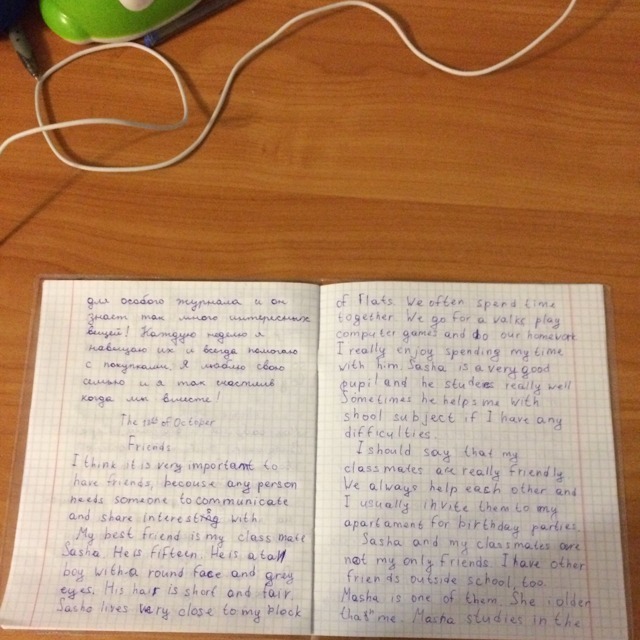 для особого журнала и он
знает так много интересных
вещей! Каждую неделю я
навещаю их и всегда помогаю
с покупками. Я люблю свою
семью и я так счастлив
когда мы вместе!
The of October
Friends
I think it is very important to
have friends, becouse any person
needs someone to communicate
and share interests with.
My best friend is my class mate
Sasha. He is fifteen. He is a tall
boy with a round face and grey
eyes. His hair is short and fair.
Sasha lives very close to my block
of flats. We often spend time
together. We go for a walks play
computer games and do our homework
I really enjoy spending my time
with him. Sasha is a very good
pupil and he studes really well
Sometimes he helps me with
shool subject if I have any
difficulties.
I should say that my
classmates are really friendly
We always help each other and
I usually invite them to my
apartament for birthday parties.
Sasha and my classmates are
not my only friends. I have other
friends outside school, too.
Masha is one of them. She is older
than me. Masha studies in the